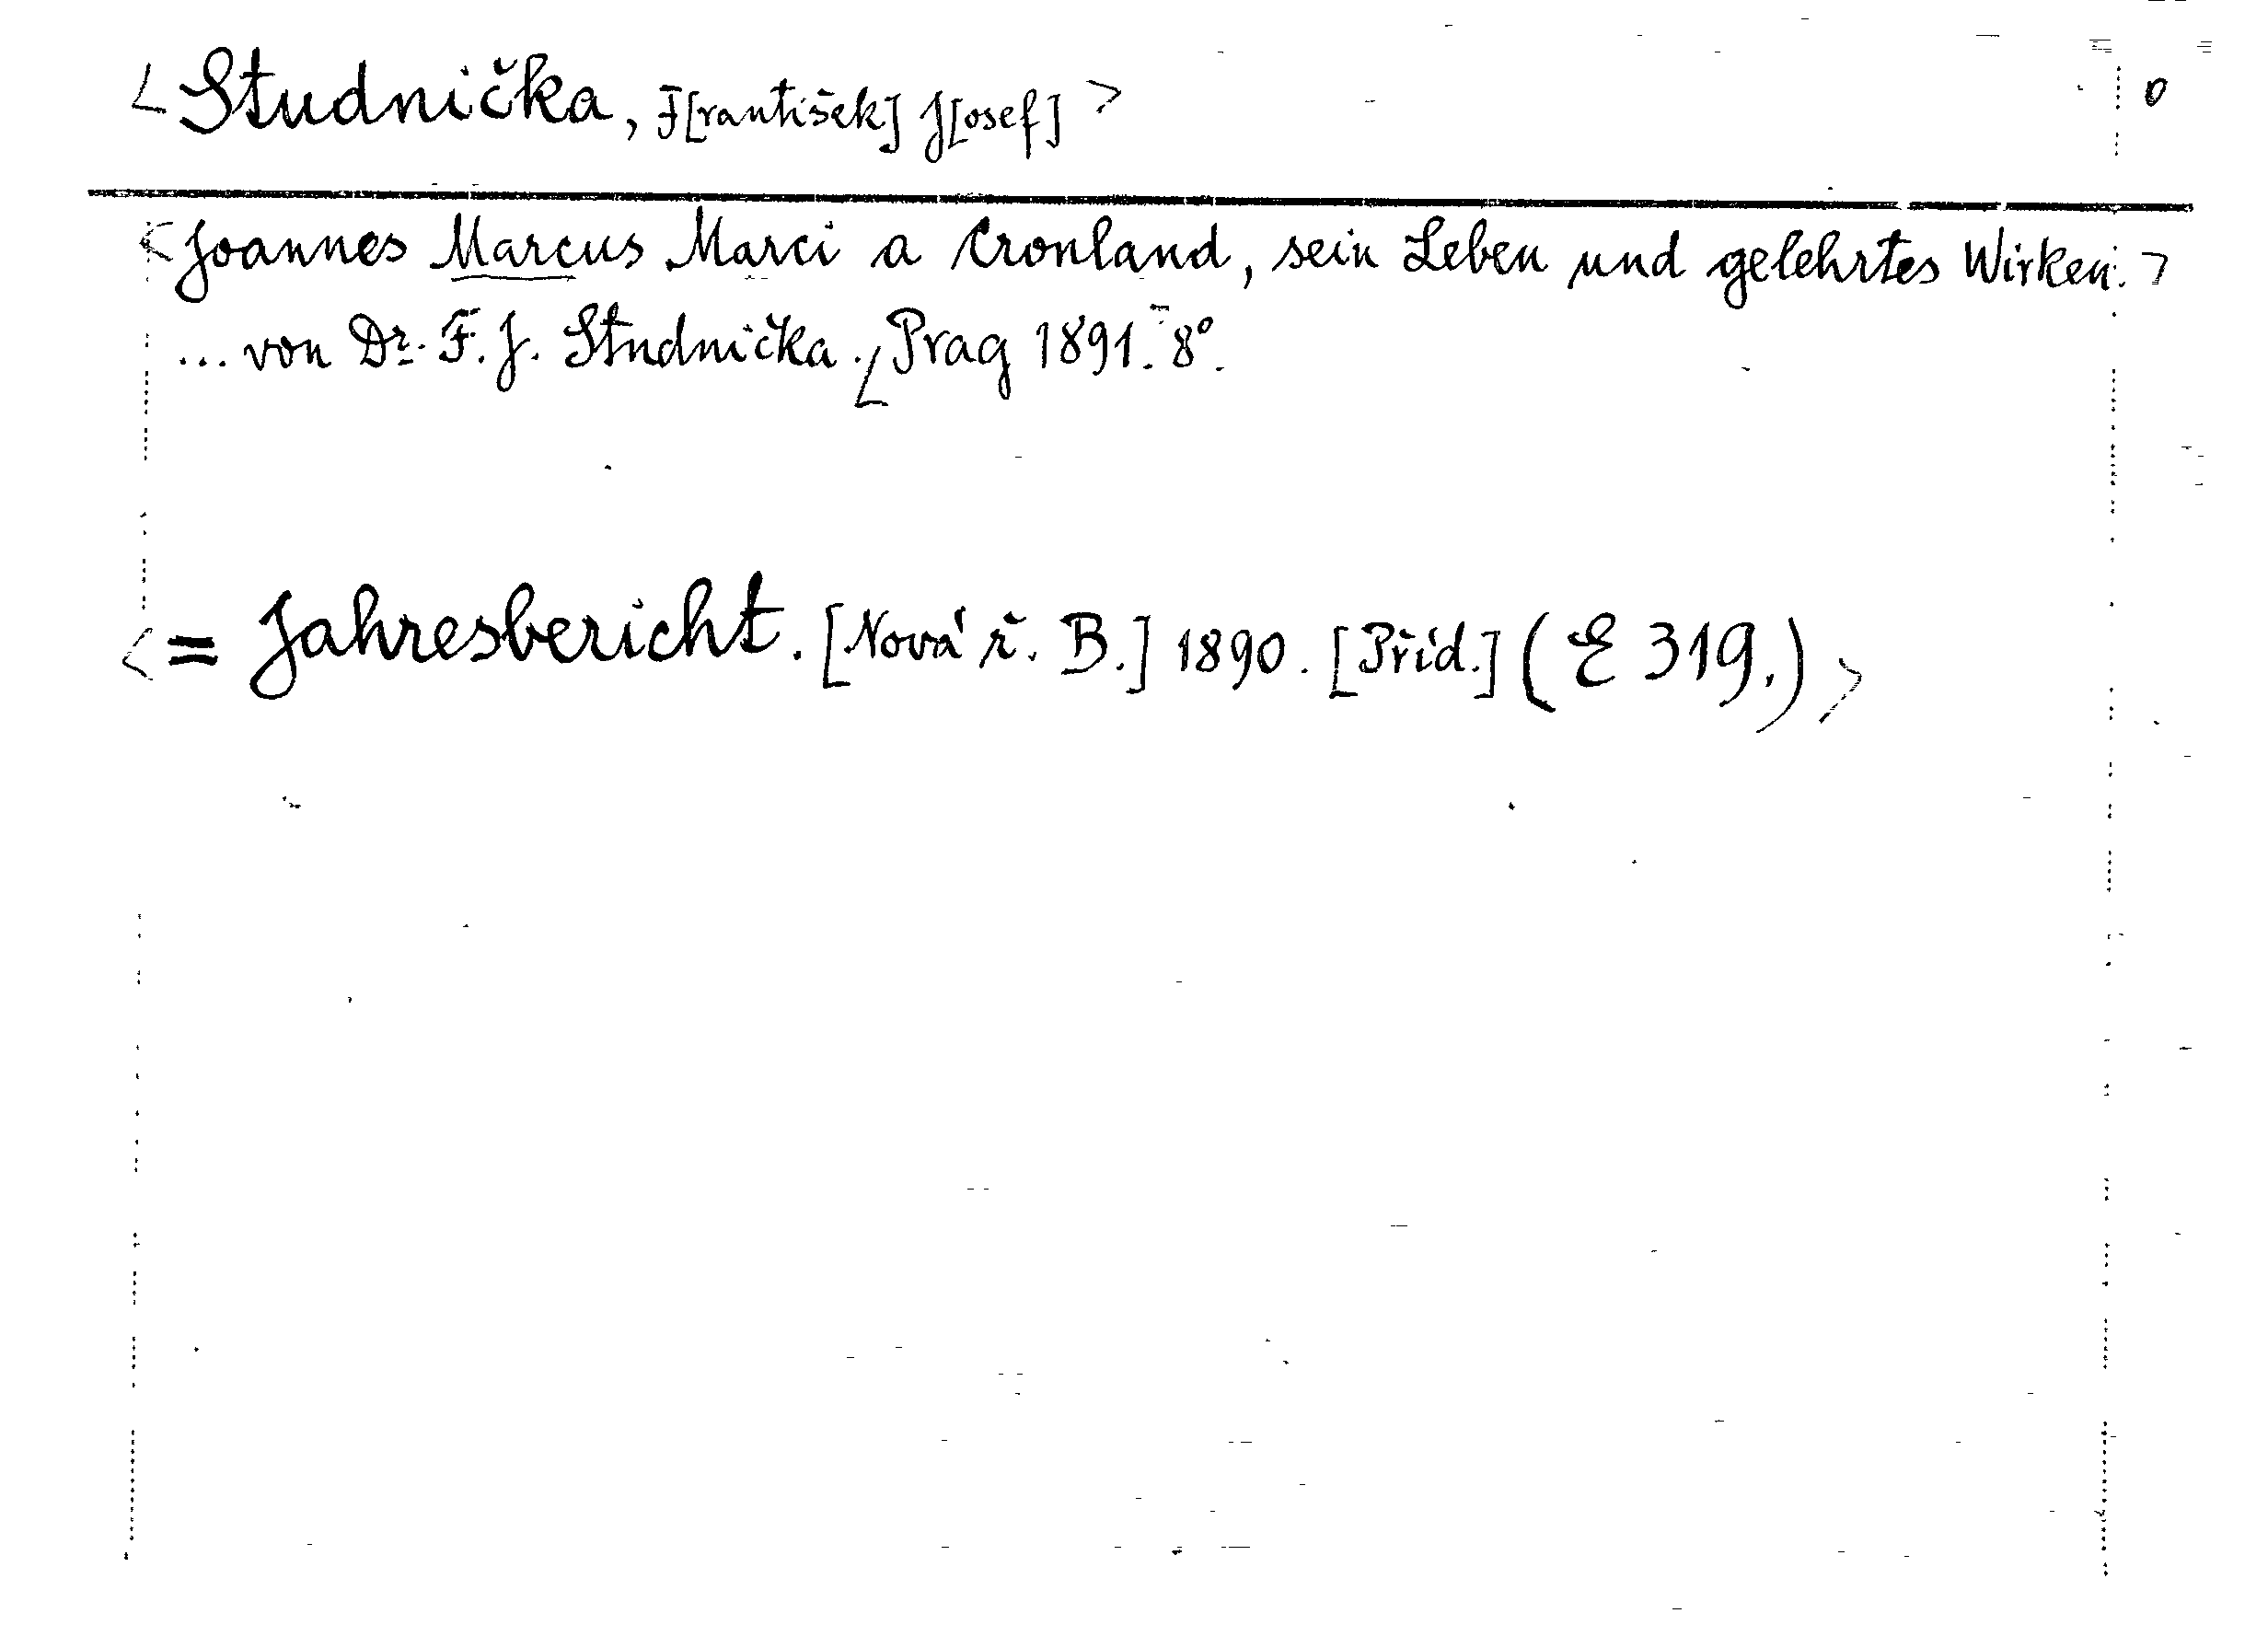 <Studnička, F[rantišek] J[osef]> 0
<Joannes Marcus Marci a Cronland, sein Leben und gelehrtes Wirken.>
... von Dr. F. J. Studnička. Prag 1891. 8°.
<= Jahresbericht. [Nová ř. B.] 1890. [Příd.] (E 319.)>